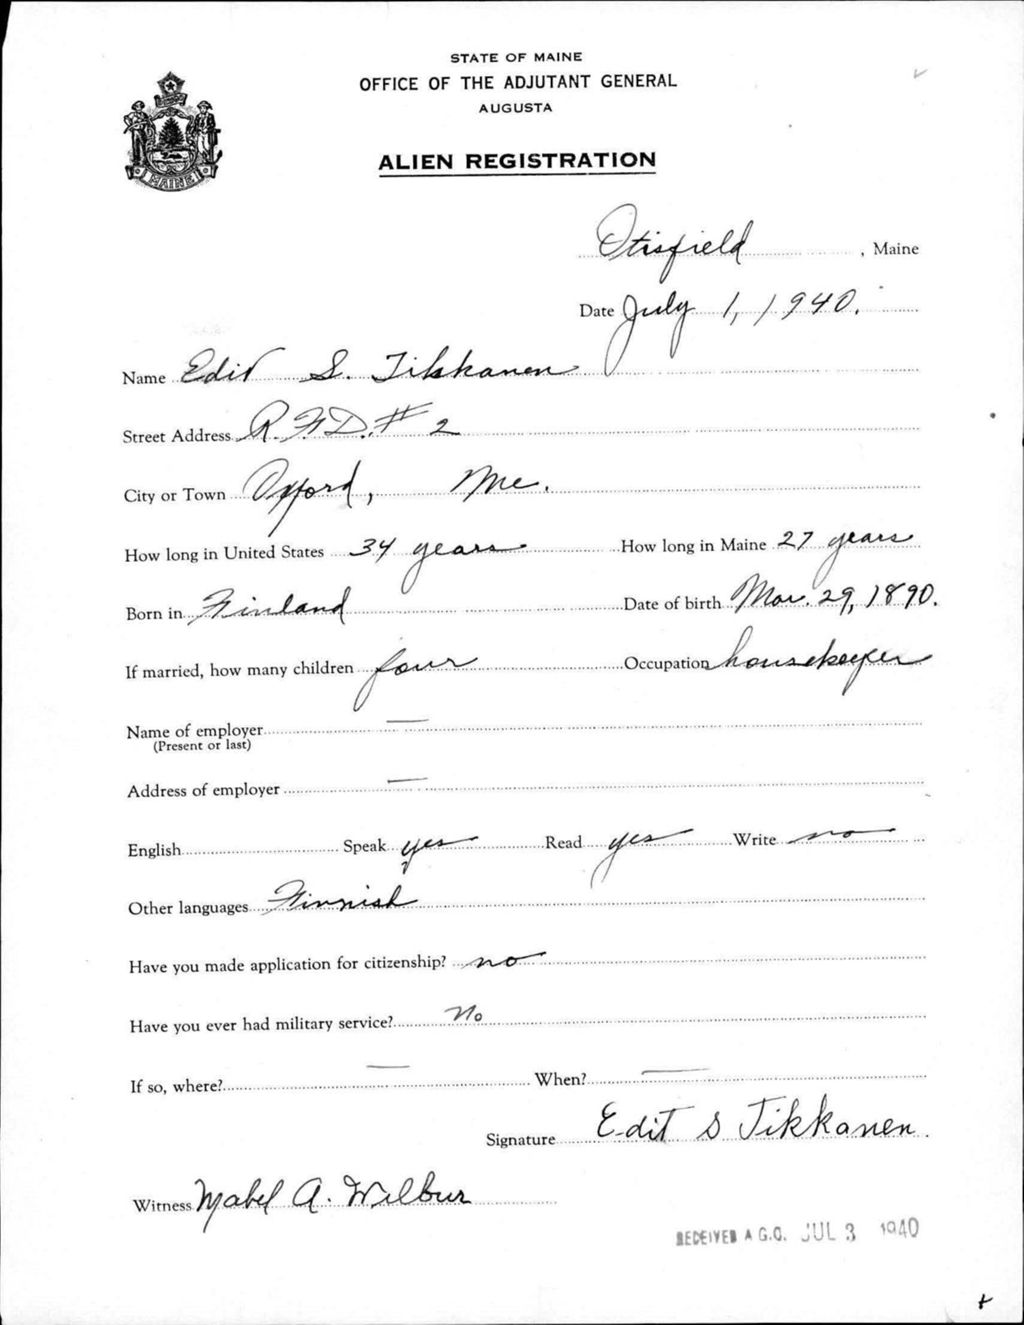 STATE OF MAINE
OFFICE OF THE ADJUTANT GENERAL
AUGUSTA
MAINE
ALIEN REGISTRATION
Otisfield, Maine
Date July 1, 1940.
Name Edit S. Tikkanen
Street Address R.F.D. # 2
City or Town Oxford, Me.
How long in United States 34 years How long in Maine 27 years
Born in Finland Date of birth Mar. 29, 1890.
If married, how many children four Occupation housekeeper
Name of employer —
(Present or last)
Address of employer —
English Speak yes Read yes Write no
Other languages Finnish
Have you made application for citizenship? no
Have you ever had military service? No
If so, where? — When? —
Signature Edit S Tikkanen
Witness Mabel A. Wilbur
RECEIVED A.G.O. JUL 3 1940